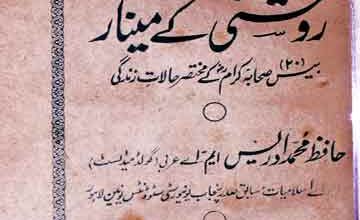 روشنی کے مینار
بیس (۲۰) صحابہ کرامؓ کے مختصر حالات زندگی
حافظ محمد ادریس ایم۔اے عربی (گولڈ میڈلسٹ)
اے اسلامیات: سابق صدر پنجاب یونیورسٹی سٹوڈنٹس یونین لاہور